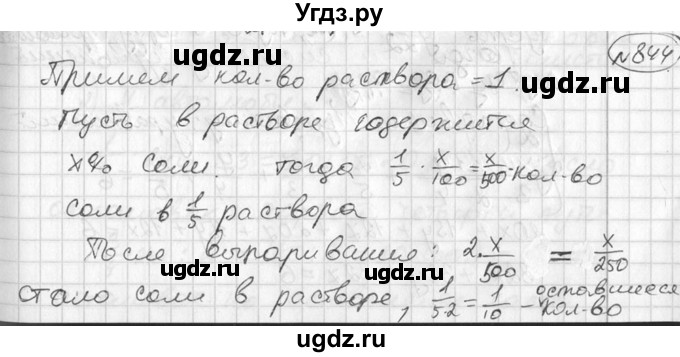 Угдз.ру
№844
Примем кол-во раствора = 1.
Пусть в растворе содержится
x% соли. тогда 1/5 · x/100 = x/500 - кол-во
соли в 1/5 раствора
После выпаривания: 2·x/500 = x/250
стало соли в растворе, 1/5·2 = 1/10 - оставшиеся кол-во
ugdz.ru
ugdz.ru
ugdz.ru
ugdz.ru
ugdz.ru
ugdz.ru
ugdz.ru
ugdz.ru